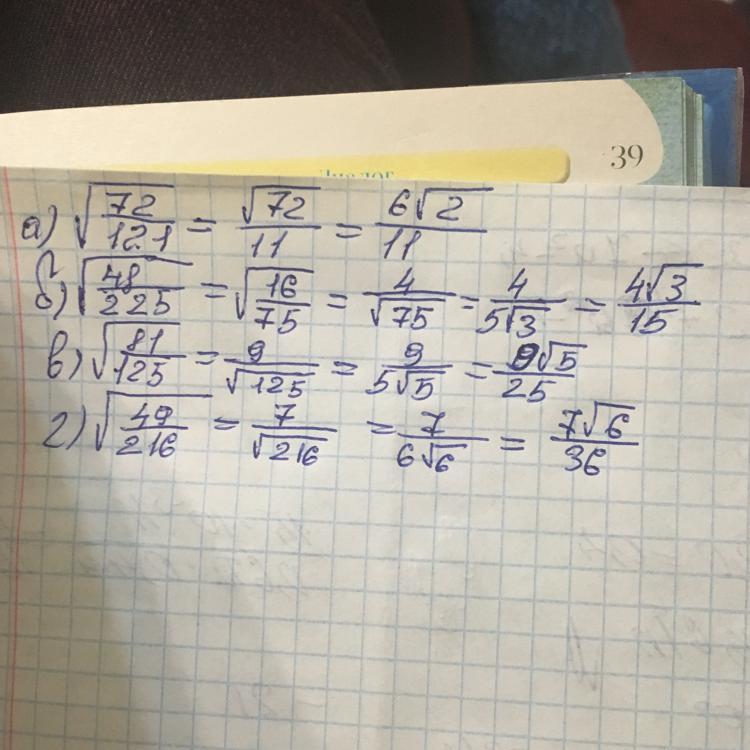 39
Диалог
а) √(72/121) = √72/11 = 6√2/11
б) √(48/225) = √(16/75) = 4/√75 = 4/(5√3) = 4√3/15
в) √(81/125) = 9/√125 = 9/(5√5) = 9√5/25
г) √(49/216) = 7/√216 = 7/(6√6) = 7√6/36